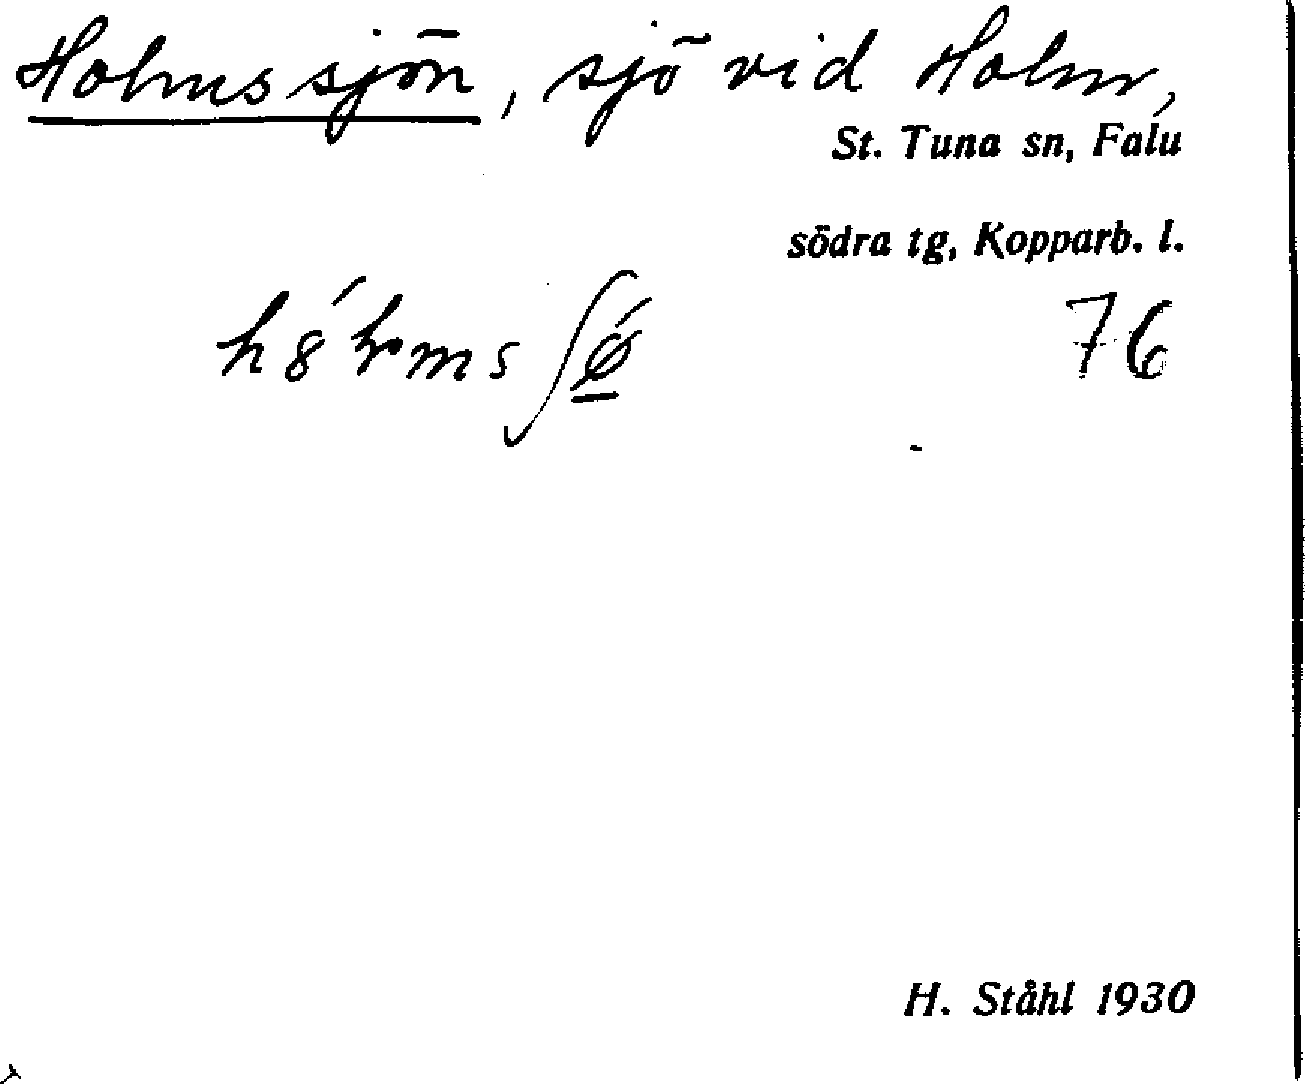 Holmssjön, sjö vid Holm,
St. Tuna sn, Falu
södra tg, Kopparb. l.
76
H. Ståhl 1930